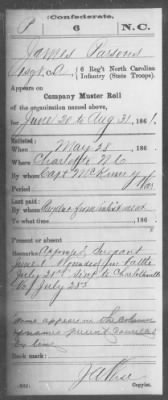 (Confederate.)
P 6 N.C.
James Parsons
Sergt, Co. , 6 Reg't North Carolina
Infantry (State Troops).
Appears on
Company Muster Roll
of the organization named above,
for June 20 to Aug 31, 1861.
Enlisted:
When May 28, 186
Where Charlotte N.C.
By whom Capt McKinney
Period War
Last paid:
By whom
To what time , 186
Present or absent
Remarks: Sergeant
June 1 Wounded in battle
July 21st sent to Charlottesville
Va July 23d
name appears in column
of names present
Book mark:
(642) Copyist.